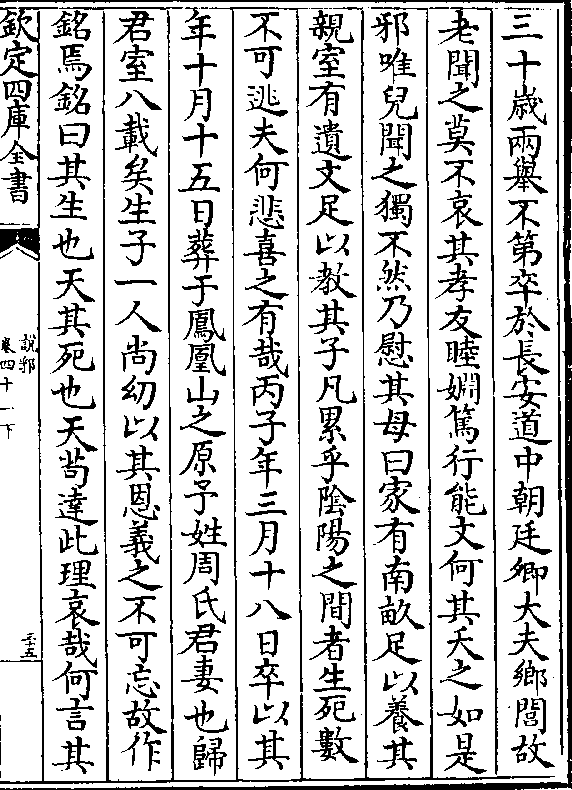 三十歲兩舉不第卒於長安道中朝廷卿大夫鄉閭故
老聞之莫不哀其孝友睦婣篤行能文何其夭之如是
邪唯兒聞之獨不然乃慰其母曰家有南畝足以養其
親室有遺文足以教其子凡累乎陰陽之間者生死數
不可逃夫何悲喜之有哉丙子年三月十八日卒以其
年十月十五日葬于鳳凰山之原予姓周氏君妻也歸
君室八載矣生子一人尚幼以其恩義之不可忘故作
銘焉銘曰其生也天其死也天茍達此理哀哉何言其
欽定四庫全書
說郛
卷四十一下
三五